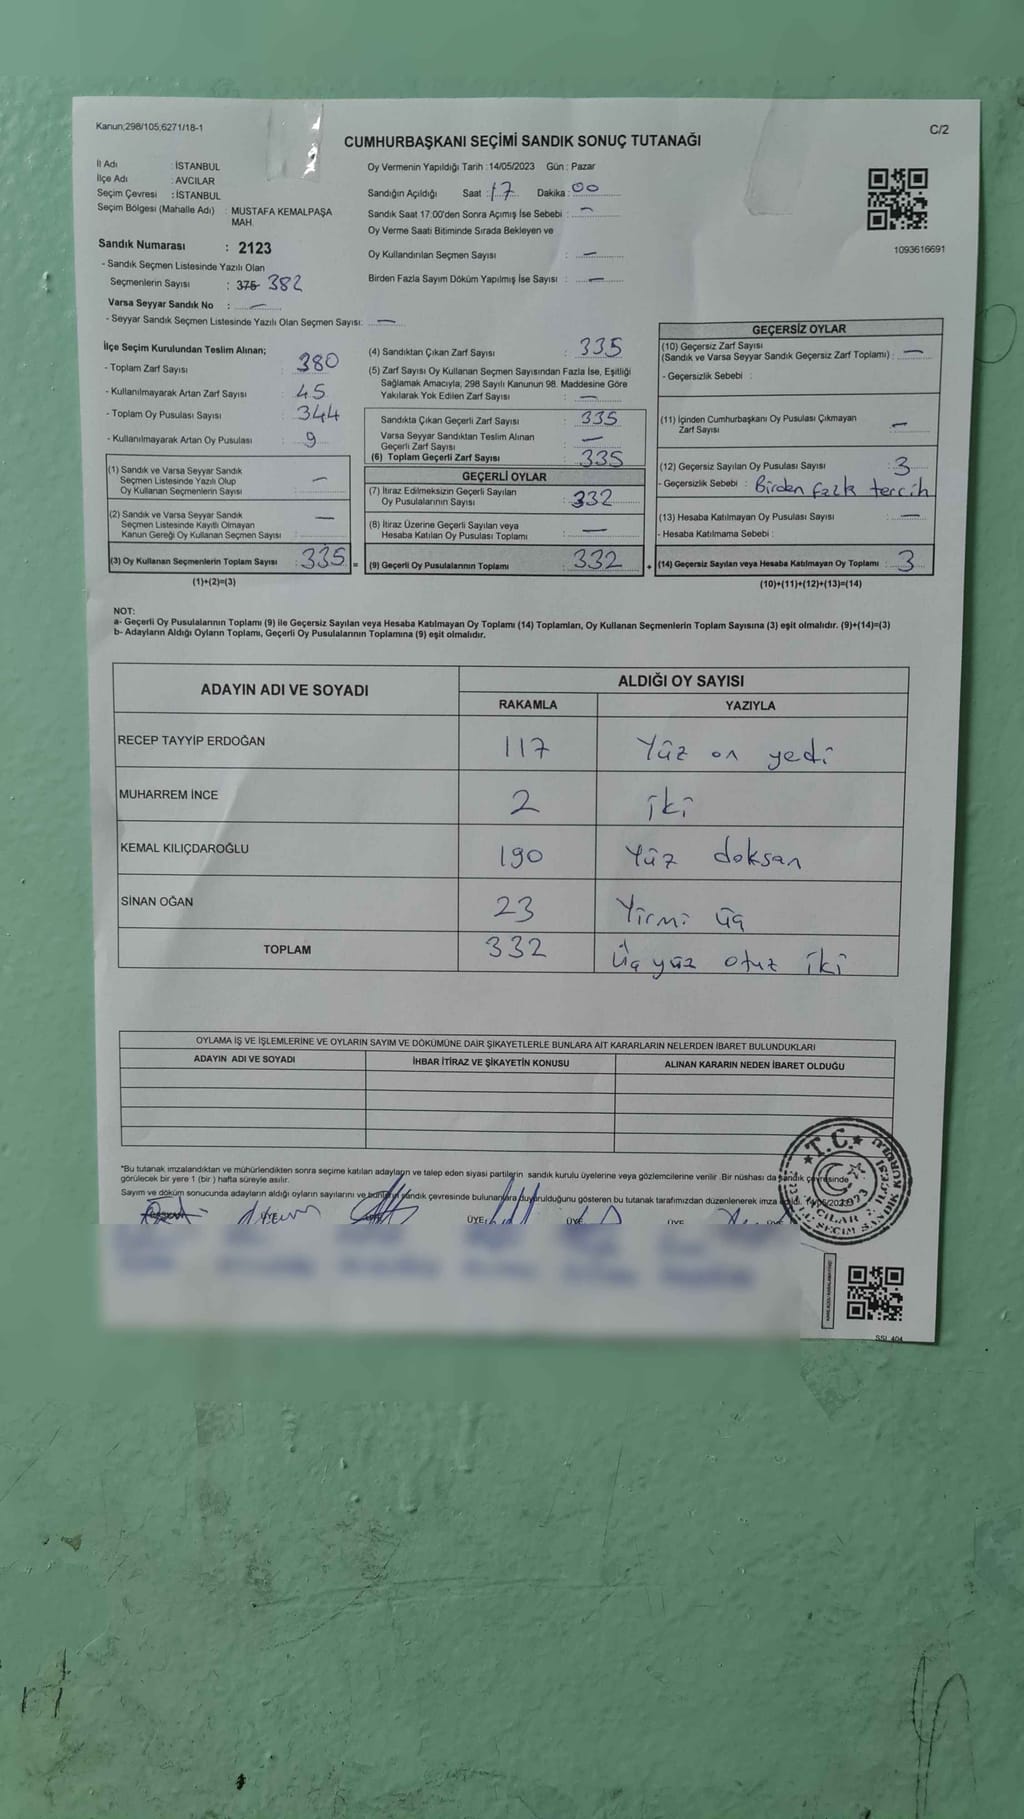 Kanun;298/105;6271/18-1
C/2
CUMHURBAŞKANI SEÇİMİ SANDIK SONUÇ TUTANAĞI
İl Adı : İSTANBUL
İlçe Adı : AVCILAR
Seçim Çevresi : İSTANBUL
Seçim Bölgesi (Mahalle Adı) : MUSTAFA KEMALPAŞA
MAH.
Sandık Numarası : 2123
- Sandık Seçmen Listesinde Yazılı Olan
Seçmenlerin Sayısı : 375 382
Varsa Seyyar Sandık No : —
- Seyyar Sandık Seçmen Listesinde Yazılı Olan Seçmen Sayısı: —
Oy Vermenin Yapıldığı Tarih :14/05/2023 Gün : Pazar
Sandığın Açıldığı Saat : 17 Dakika : 00
Sandık Saat 17:00'den Sonra Açımış İse Sebebi : —
Oy Verme Saati Bitiminde Sırada Bekleyen ve
Oy Kullandırılan Seçmen Sayısı : —
Birden Fazla Sayım Döküm Yapılmış İse Sayısı : —
1093616691
İlçe Seçim Kurulundan Teslim Alınan;
- Toplam Zarf Sayısı : 380
- Kullanılmayarak Artan Zarf Sayısı : 45
- Toplam Oy Pusulası Sayısı : 344
- Kullanılmayarak Artan Oy Pusulası : 9
(1) Sandık ve Varsa Seyyar Sandık
Seçmen Listesinde Yazılı Olup
Oy Kullanan Seçmenlerin Sayısı : —
(2) Sandık ve Varsa Seyyar Sandık
Seçmen Listesinde Kayıtlı Olmayan
Kanun Gereği Oy Kullanan Seçmen Sayısı : —
(3) Oy Kullanan Seçmenlerin Toplam Sayısı : 335 =
(1)+(2)=(3)
(4) Sandıktan Çıkan Zarf Sayısı : 335
(5) Zarf Sayısı Oy Kullanan Seçmen Sayısından Fazla İse, Eşitliği
Sağlamak Amacıyla, 298 Sayılı Kanunun 98. Maddesine Göre
Yakılarak Yok Edilen Zarf Sayısı : —
Sandıkta Çıkan Geçerli Zarf Sayısı : 335
Varsa Seyyar Sandıktan Teslim Alınan
Geçerli Zarf Sayısı : —
(6) Toplam Geçerli Zarf Sayısı : 335
GEÇERLİ OYLAR
(7) İtiraz Edilmeksizin Geçerli Sayılan
Oy Pusulalarının Sayısı : 332
(8) İtiraz Üzerine Geçerli Sayılan veya
Hesaba Katılan Oy Pusulası Toplamı : —
(9) Geçerli Oy Pusulalarının Toplamı : 332 +
GEÇERSİZ OYLAR
(10) Geçersiz Zarf Sayısı
(Sandık ve Varsa Seyyar Sandık Geçersiz Zarf Toplamı) : —
- Geçersizlik Sebebi :
(11) İçinden Cumhurbaşkanı Oy Pusulası Çıkmayan
Zarf Sayısı : —
(12) Geçersiz Sayılan Oy Pusulası Sayısı : 3
- Geçersizlik Sebebi : Birden fazla tercih
(13) Hesaba Katılmayan Oy Pusulası Sayısı : —
- Hesaba Katılmama Sebebi :
(14) Geçersiz Sayılan veya Hesaba Katılmayan Oy Toplamı : 3
(10)+(11)+(12)+(13)=(14)
NOT:
a- Geçerli Oy Pusulalarının Toplamı (9) ile Geçersiz Sayılan veya Hesaba Katılmayan Oy Toplamı (14) Toplamları, Oy Kullanan Seçmenlerin Toplam Sayısına (3) eşit olmalıdır. (9)+(14)=(3)
b- Adayların Aldığı Oyların Toplamı, Geçerli Oy Pusulalarının Toplamına (9) eşit olmalıdır.
ADAYIN ADI VE SOYADI
ALDIĞI OY SAYISI
RAKAMLA YAZIYLA
RECEP TAYYİP ERDOĞAN 117 Yüz on yedi
MUHARREM İNCE 2 iki
KEMAL KILIÇDAROĞLU 190 Yüz doksan
SİNAN OĞAN 23 Yirmi üç
TOPLAM 332 Üç yüz otuz iki
OYLAMA İŞ VE İŞLEMLERİNE VE OYLARIN SAYIM VE DÖKÜMÜNE DAİR ŞİKAYETLERLE BUNLARA AİT KARARLARIN NELERDEN İBARET BULUNDUKLARI
ADAYIN ADI VE SOYADI İHBAR İTİRAZ VE ŞİKAYETİN KONUSU ALINAN KARARIN NEDEN İBARET OLDUĞU
*Bu tutanak imzalandıktan ve mühürlendikten sonra seçime katılan adayların ve talep eden siyasi partilerin sandık kurulu üyelerine ve gözlemcilerine verilir .Bir nüshası da sandık çevresinde
görülecek bir yere 1 (bir ) hafta süreyle asılır.
Sayım ve döküm sonucunda adayların aldığı oyların sayılarını ve bunların sandık çevresinde bulunanlara duyurulduğunu gösteren bu tutanak tarafımızdan düzenlenerek imza edildi. 14/05/2023
ÜYE ÜYE ÜYE ÜYE
T.C.
SSL 404